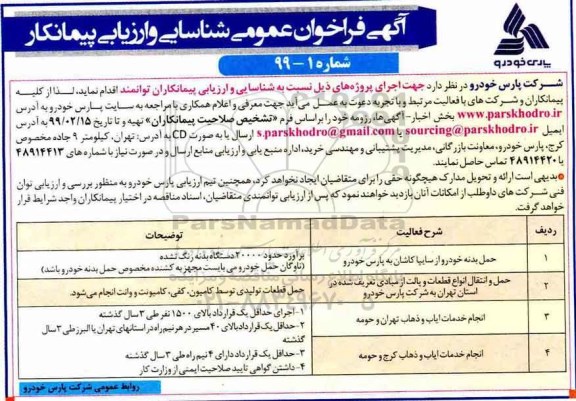 آگهی فراخوان عمومی شناسایی و ارزیابی پیمانکار
شماره ۱ - ۹۹
پارس خودرو
شرکت پارس خودرو در نظر دارد جهت اجرای پروژه‌های ذیل نسبت به شناسایی و ارزیابی پیمانکاران توانمند اقدام نماید، لذا از کلیه
پیمانکاران و شرکت های با فعالیت مرتبط و با تجربه دعوت بعمل می آید جهت معرفی و اعلام همکاری با مراجعه به سایت پارس خودرو به آدرس
www.parskhodro.ir بخش اخبار-آگهی‌ها، رزومه خود را براساس فرم «تشخیص صلاحیت پیمانکاران» تهیه و تا تاریخ ۹۹/۰۲/۱۵ به آدرس
ایمیل sourcing@parskhodro.ir یا s.parskhodro@gmail.com ارسال یا به صورت CD به آدرس: تهران، کیلومتر ۹ جاده مخصوص
کرج، پارس خودرو، معاونت بازرگانی، مدیریت پشتیبانی و مهندسی خرید، اداره منبع یابی و ارزیابی منابع ارسال و در صورت نیاز با شماره های ۴۸۹۱۴۴۱۳
یا ۴۸۹۱۴۴۲۰ تماس حاصل نمایند.
بدیهی است ارائه و تحویل مدارک هیچگونه حقی را برای متقاضیان ایجاد نخواهد کرد، همچنین تیم ارزیابی پارس خودرو به منظور بررسی و ارزیابی توان
فنی شرکت های داوطلب از امکانات آنان بازدید خواهند نمود که پس از ارزیابی توانمندی متقاضیان، اسناد مناقصه در اختیار پیمانکاران واجد شرایط قرار
خواهد گرفت.
ردیف شرح فعالیت توضیحات
۱ حمل بدنه خودرو از سایپا کاشان به پارس خودرو برآورد حدود ۲۰۰۰۰ دستگاه بدنه رنگ شده
(ناوگان حمل خودرو می بایست مجهز به کشنده مخصوص حمل بدنه خودرو باشد)
۲ حمل و انتقال انواع قطعات و پالت از مبادی تعریف شده در
استان تهران به شرکت پارس خودرو حمل قطعات تولیدی توسط کامیون، کفی، کامیونت و وانت انجام می‌شود.
۳ انجام خدمات ایاب و ذهاب تهران و حومه ۱-اجرای حداقل یک قرارداد بالای ۱۵۰۰ نفر طی ۳ سال گذشته
۲-حداقل یک قرارداد بالای ۴۰ مسیر در هر نیم راه در استانهای تهران یا البرز طی ۳ سال
گذشته
۴ انجام خدمات ایاب و ذهاب کرج و حومه ۳-حداقل یک قرارداد دارای ۴ نیم راه طی ۳ سال گذشته
۴-داشتن گواهی تایید صلاحیت ایمنی از وزارت کار
روابط عمومی شرکت پارس خودرو
ParsNamadData